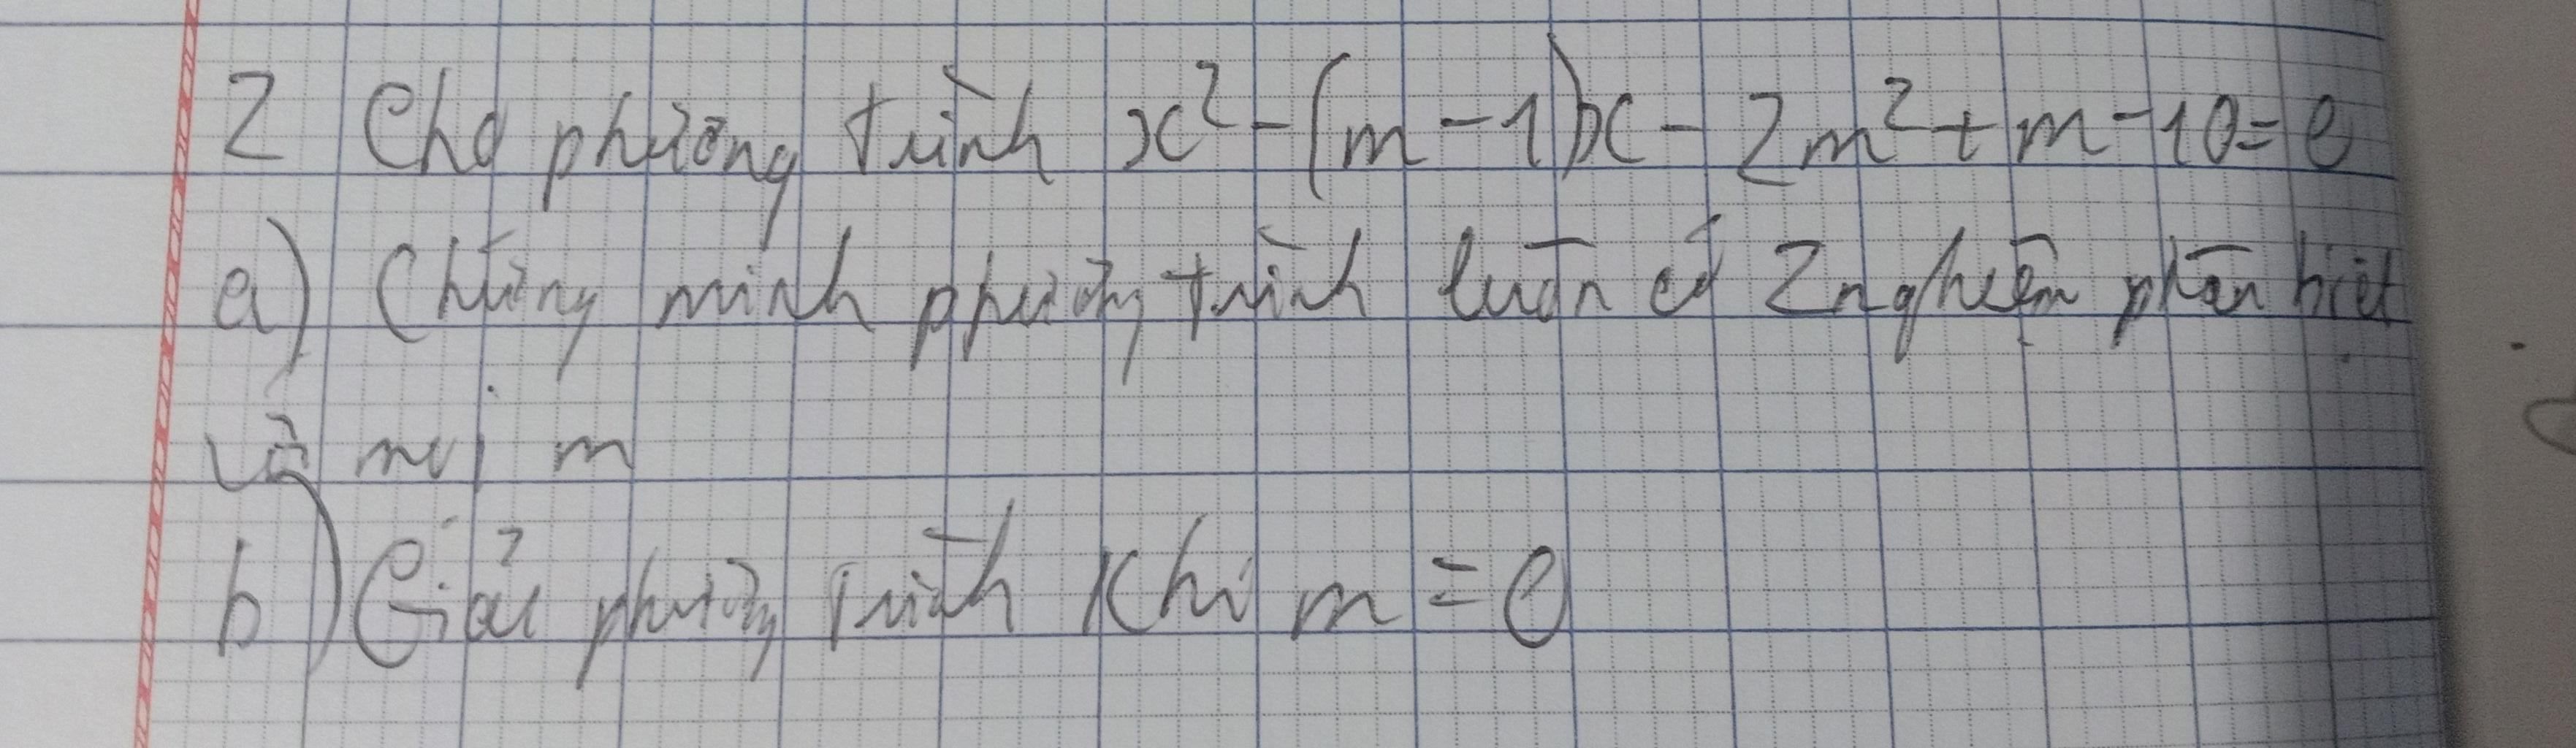 2 Cho phương trình x² - (m - 1)x - 2m² + m - 10 = 0
a) Chứng minh phương trình luôn có 2 nghiệm phân biệt
với mọi m
b) Giải phương trình khi m = 0